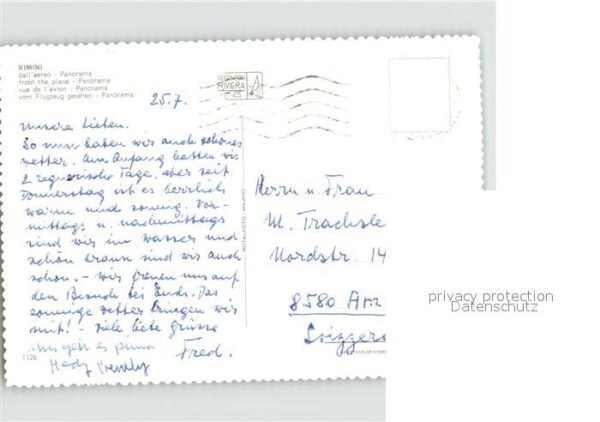 RIMINI
dall'aereo - Panorama
from the plane - Panorama
vue de l'avion - Panorama
vom Flugzeug gesehen - Panorama
RIVIERA
25.7.
Unsere Lieben.
So nun haben wir auch schönes
Wetter. Am Anfang hatten wir
2 regnerische Tage, aber seit
Donnerstag ist es herrlich
warm und sonnig. Vor-
mittags u. nachmittags
sind wir im Wasser und
schön braun sind wir auch
schon. - Wir freuen uns auf
den Besuch bei Euch. Das
sonnige Wetter bringen wir
mit! - Viele liebe Grüsse
uns geht es prima
Fred.
Hedy
1126
ROTALFOTO - MILANO
Herrn u Frau
M. Trachsle
Nordstr. 14
8580 Am
Svizzera
privacy protection
Datenschutz